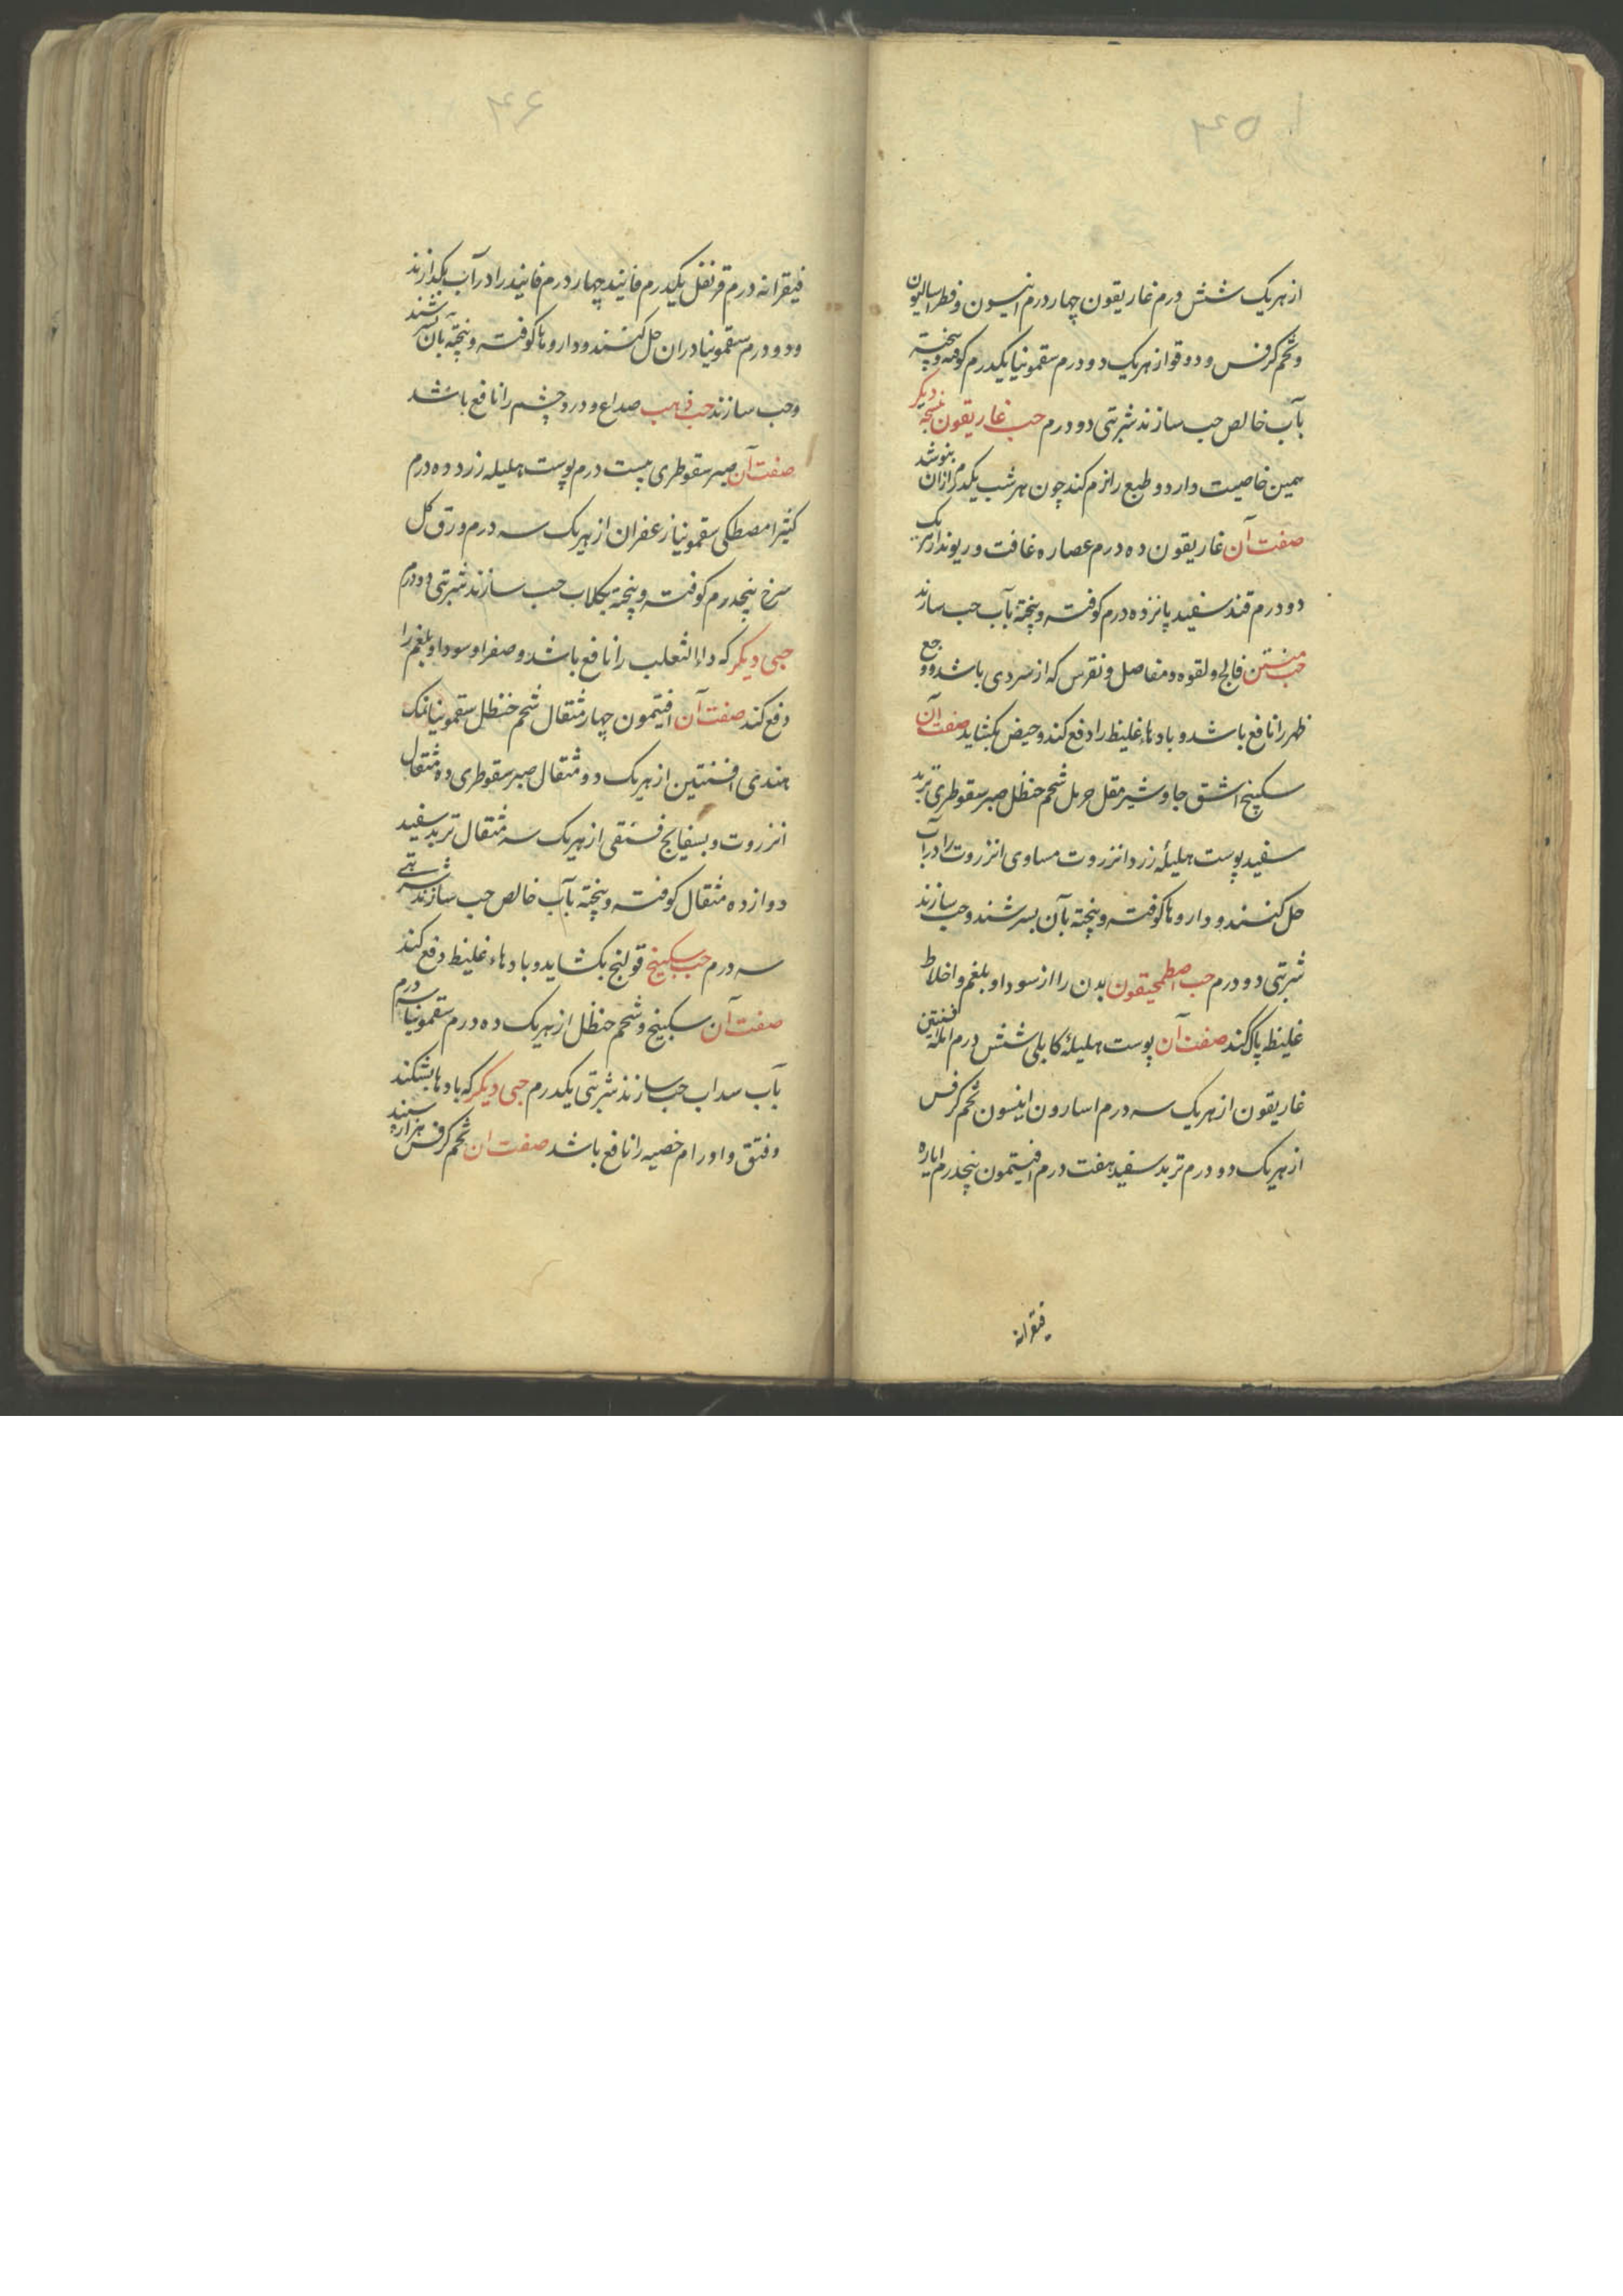 ۴۵
از هریک شش درم غاریقون چهار درم انیسون و فطراسالیون
و تخم کرفس و دوقو از هریک دو درم سقمونیا یکدرم کوفته و پخته
بآب خالص حب سازند شربتی دو درم حب غاریقون نسخهٔ دیکر
همین خاصیت دارد و طبع را نرم کند چون هر شب یکدرم ازان بنوشد
صفت آن غاریقون ده درم عصاره غافت و ریوند از هریک
دو درم قند سفید پانزده درم کوفته و پخته بآب حب سازند
حب منتن فالج و لقوه و مفاصل و نقرس که از سردی باشد و وجع
ظهر را نافع باشد و بادهاء غلیظ را دفع کند و حیض بکشاید صفت آن
سکبینج اشق جاوشیر مقل حرمل شحم حنظل صبر سقوطری تربد
سفید پوست هلیلهٔ زرد انزروت مساوی انزروت را در آب
حل کنند و داروها کوفته و پخته بآن بسرشند و حب سازند
شربتی دو درم حب اصطمحیقون بدن را از سودا و بلغم و اخلاط
غلیظ پاک کند صفت آن پوست هلیلهٔ کابلی شش درم امله افسنتین
غاریقون از هریک سه درم اسارون انیسون تخم کرفس
از هریک دو درم تربد سفید هفت درم افتیمون پنجدرم ایاره
فیقرا نه
۴۶
فیقرا نه درم قرنفل یکدرم فانید چهار درم فانید را در آب بکدازند
و دو درم سقمونیا دران حل کنند و داروها کوفته و پخته بآن بسرشند
و حب سازند حب ذهب صداع و درد چشم را نافع باشد
صفت آن صبر سقوطری بیست درم پوست هلیله زرد ده درم
کثیرا مصطکی سقمونیا زعفران از هریک سه درم ورق کل
سرخ پنجدرم کوفته و پخته بکلاب حب سازند شربتی دو درم
حبی دیکر که داء الثعلب را نافع باشد و صفرا و سودا و بلغم را
دفع کند صفت آن افتیمون چهار مثقال شحم حنظل سقمونیا نمک
هندی افسنتین از هریک دو مثقال صبر سقوطری ده مثقال
انزروت و بسفایج فستقی از هریک سه مثقال تربد سفید
دوازده مثقال کوفته و پخته بآب خالص حب سازند شربتی
سه درم حب سکبینج قولنج بکشاید و بادهاء غلیظ دفع کند
صفت آن سکبینج و شحم حنظل از هریک ده درم سقمونیا سه درم
بآب سداب حب سازند شربتی یکدرم حبی دیکر که بادها بشکند
و فتق و اورام خصیه را نافع باشد صفت ان تخم کرفس هزاراسپند